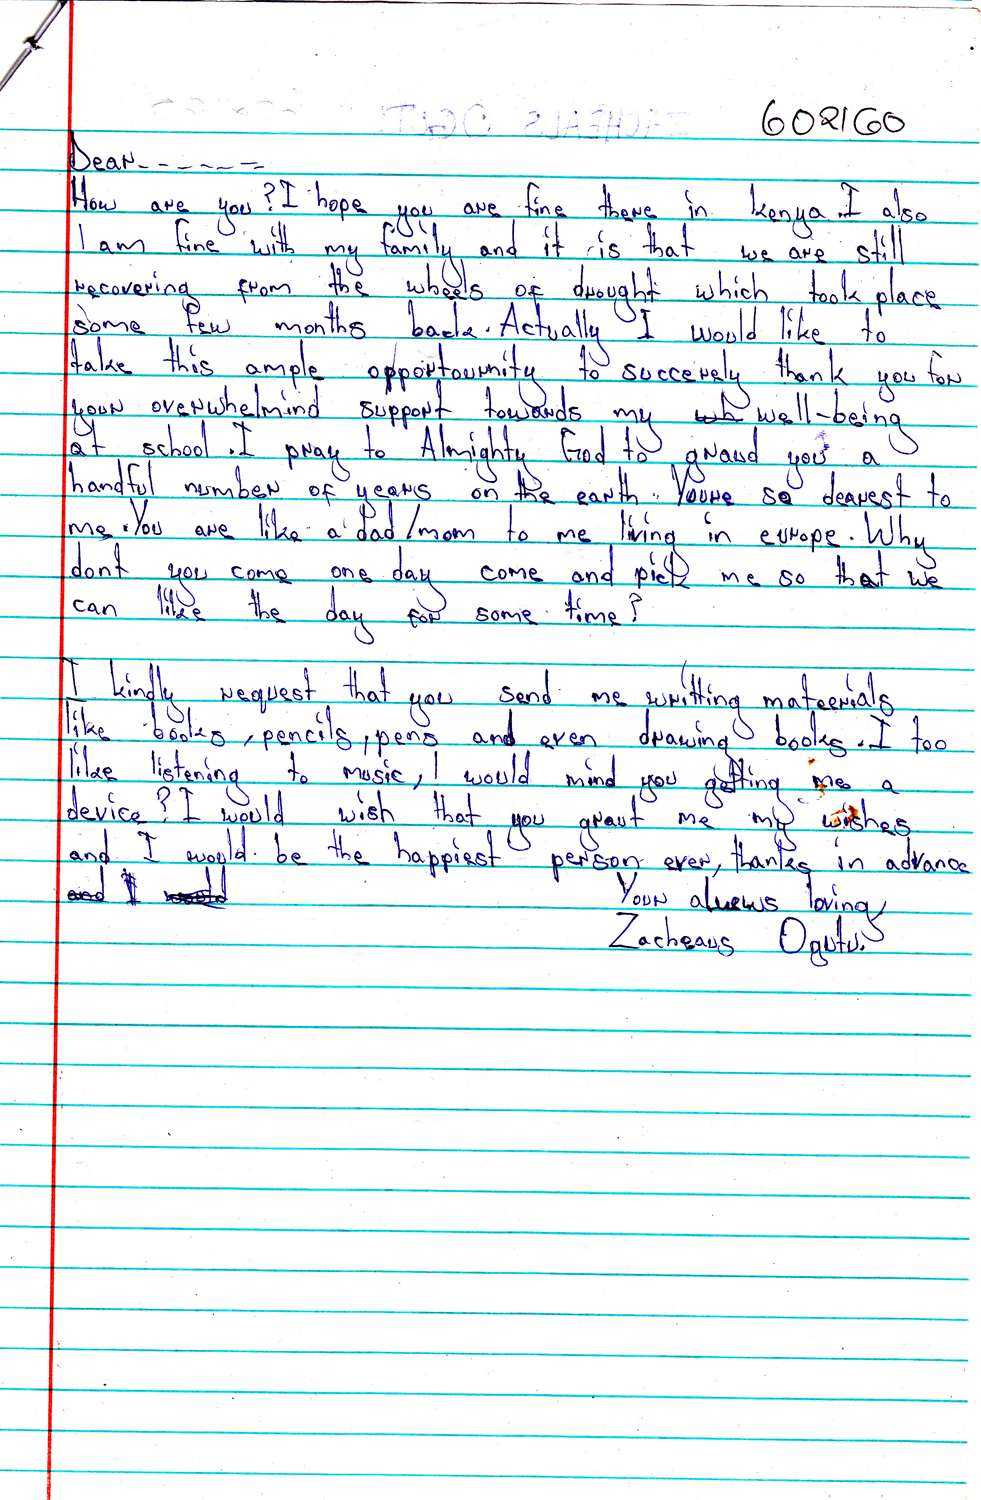 602160
Dear------
How are you? I hope you are fine there in kenya. I also
I am fine with my family and it is that we are still
recovering from the wheels of drought which took place
some few months back. Actually I would like to
take this ample opportounity to succerely thank you for
your overwhelmind support towards my wh well-being
at school. I pray to Almighty God to graud you a
handful number of years on the earth. Youre so dearest to
me. You are like a dad/mom to me living in europe. Why
dont you come one day come and pick me so that we
can like the day for some time?
I kindly request that you send me writting mateerials
like books, pencils, pens and even drawing books. I too
like listening to music, I would mind you getting me a
device? I would wish that you graut me my wishes
and I would be the happiest person ever, thanks in advance
and I would
Your always loving,
Zacheaus Ogutu.